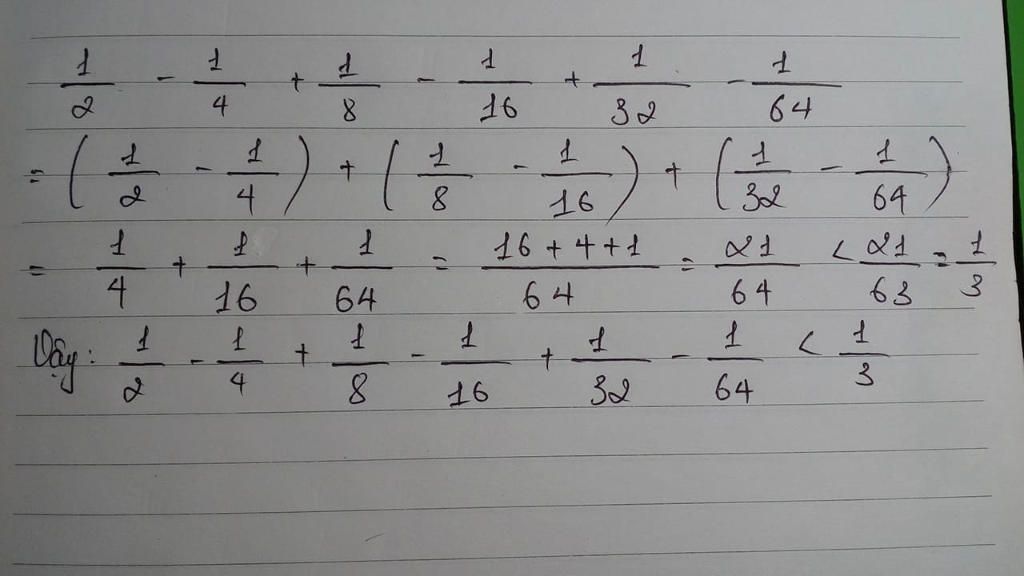 1/2 - 1/4 + 1/8 - 1/16 + 1/32 - 1/64
= (1/2 - 1/4) + (1/8 - 1/16) + (1/32 - 1/64)
= 1/4 + 1/16 + 1/64 = 16 + 4 + 1/64 = 21/64 < 21/63 = 1/3
Vậy: 1/2 - 1/4 + 1/8 - 1/16 + 1/32 - 1/64 < 1/3